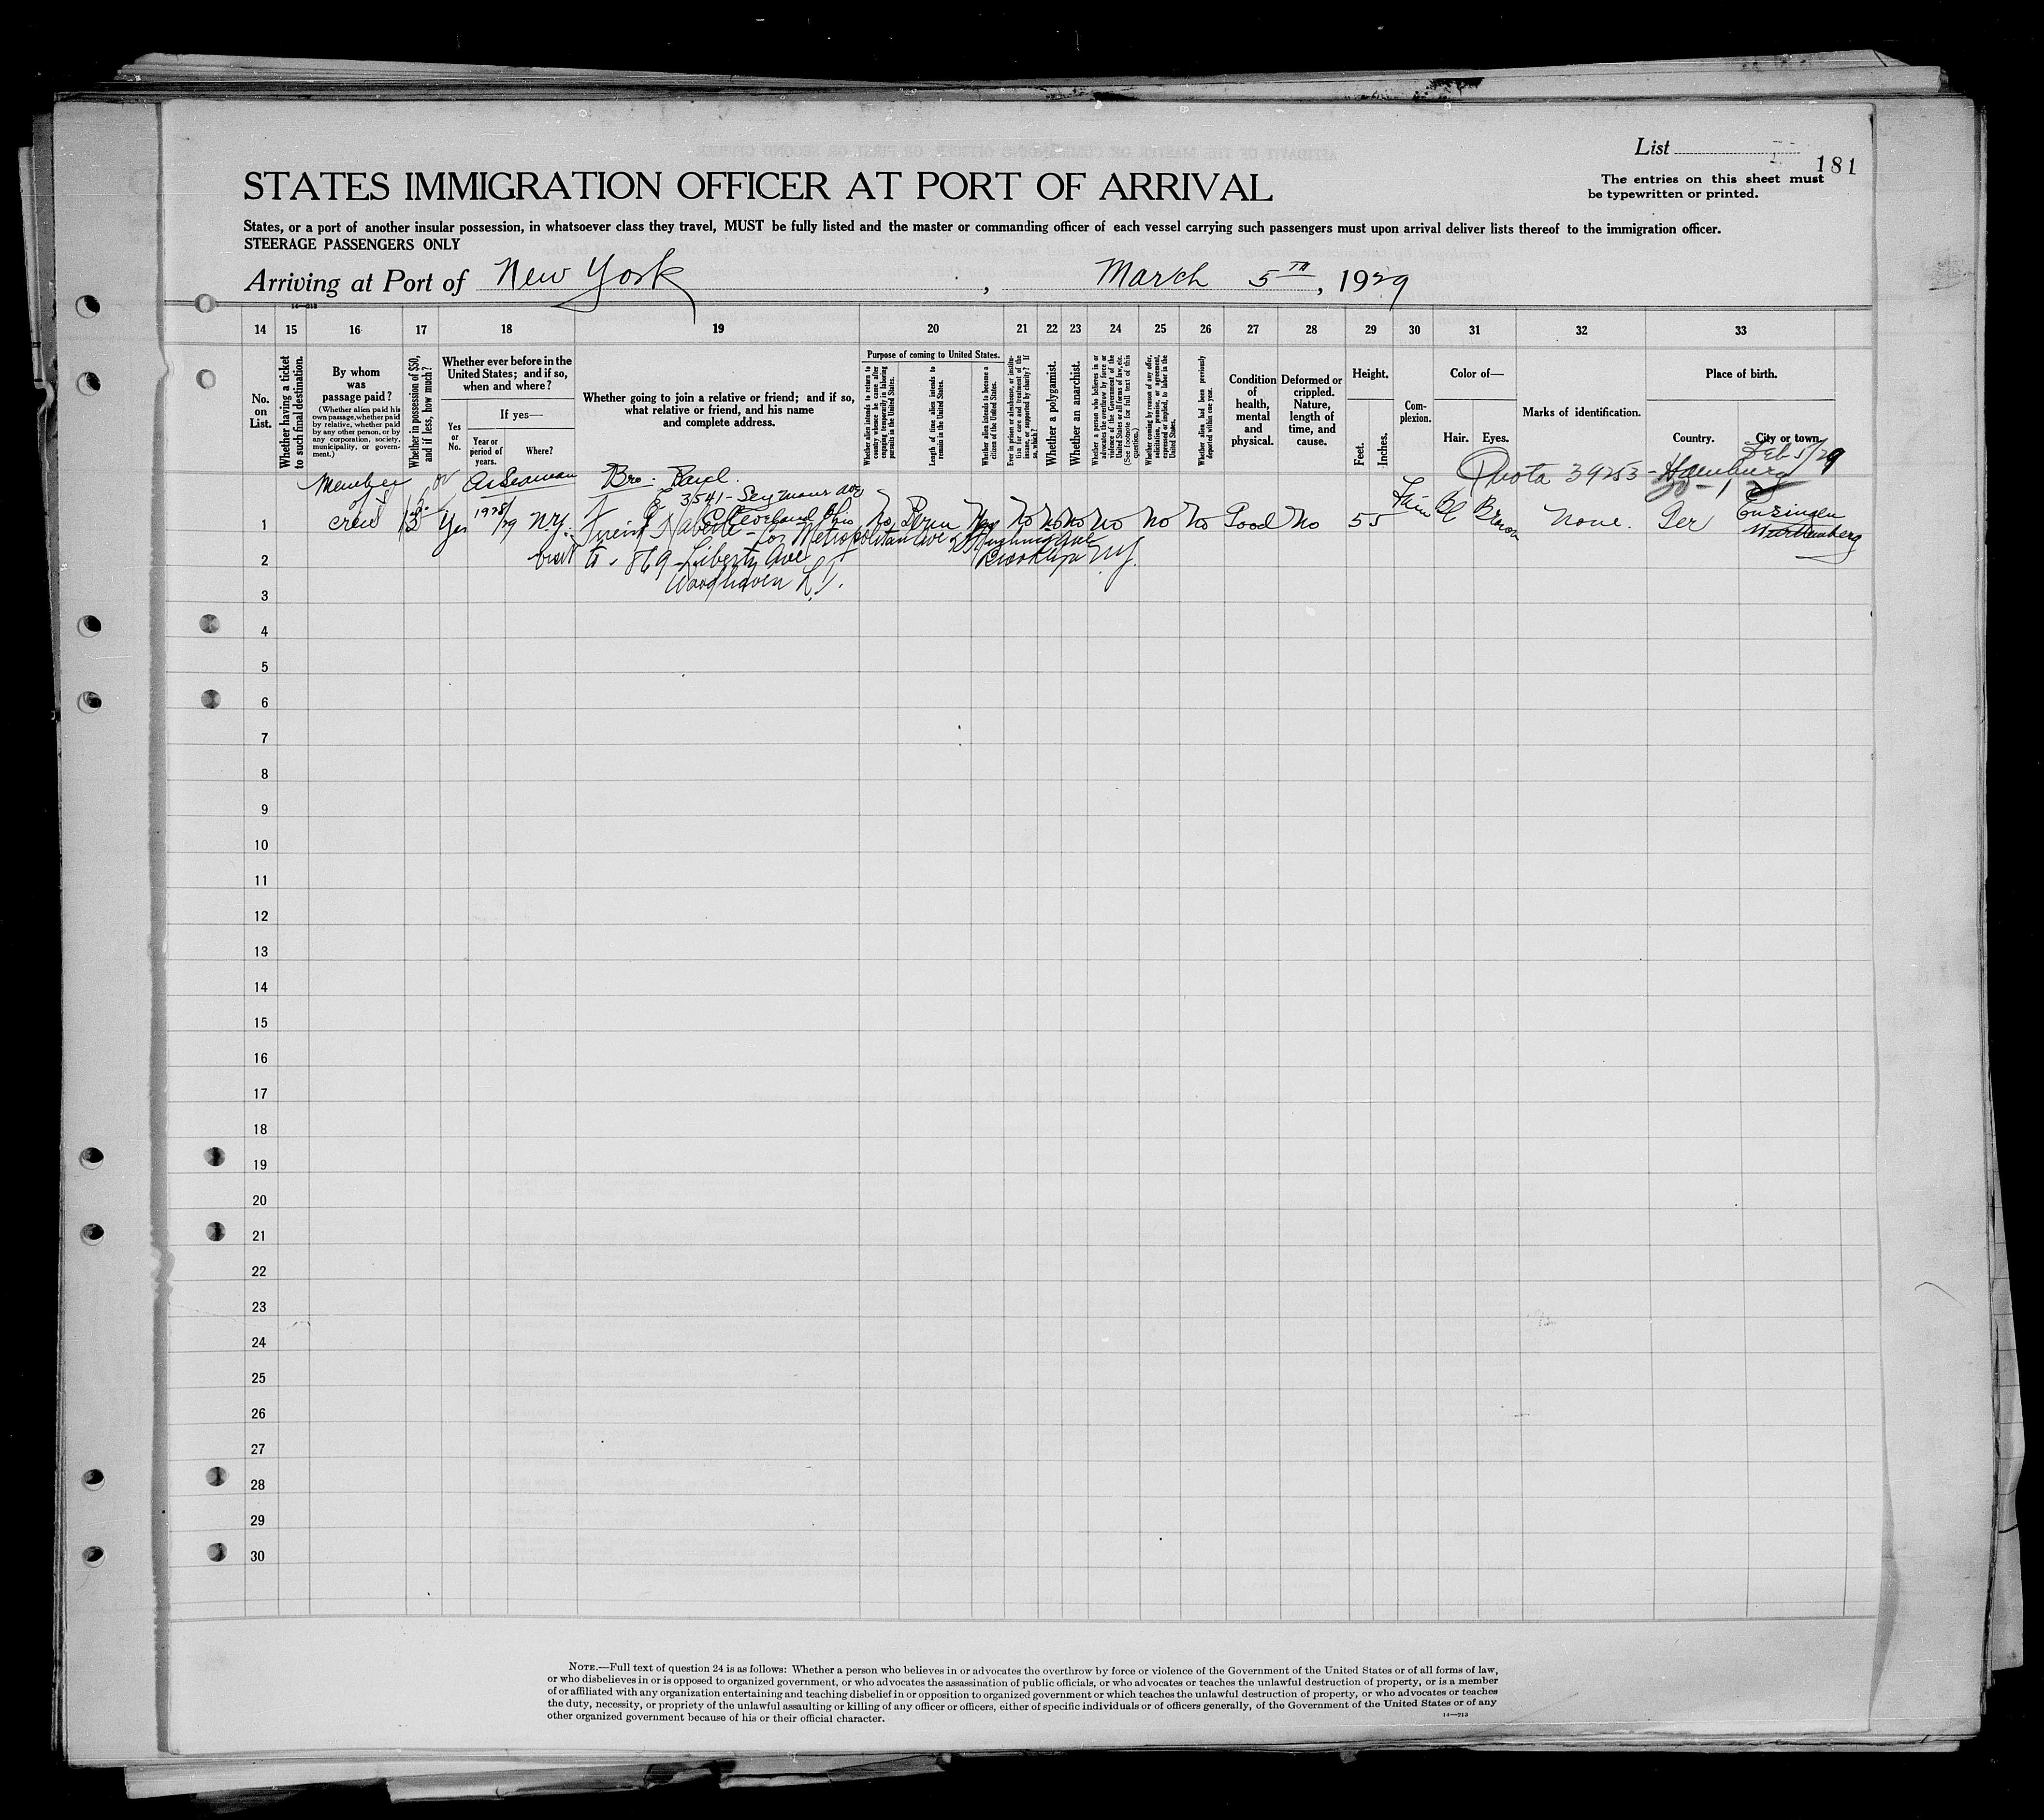 List
181
The entries on this sheet must
be typewritten or printed.
STATES IMMIGRATION OFFICER AT PORT OF ARRIVAL
States, or a port of another insular possession, in whatsoever class they travel, MUST be fully listed and the master or commanding officer of each vessel carrying such passengers must upon arrival deliver lists thereof to the immigration officer.
STEERAGE PASSENGERS ONLY
Arriving at Port of New York, March 5TH, 1929
14—213
14 15 16 17 18 19 20 21 22 23 24 25 26 27 28 29 30 31 32 33
No. on List.
Whether having a ticket to such final destination.
By whom was passage paid?
(Whether alien paid his own passage, whether paid by relative, whether paid by any other person, or by any corporation, society, municipality, or government.)
Whether in possession of $50, and if less, how much?
Whether ever before in the United States; and if so, when and where?
Yes or No.
If yes—
Year or period of years.
Where?
Whether going to join a relative or friend; and if so, what relative or friend, and his name and complete address.
Purpose of coming to United States.
Whether alien intends to return to country whence he came after engaging temporarily in laboring pursuits in the United States.
Length of time alien intends to remain in the United States.
Whether alien intends to become a citizen of the United States.
Ever in prison or almshouse, or institution for care and treatment of the insane, or supported by charity? If so, which?
Whether a polygamist.
Whether an anarchist.
Whether a person who believes in or advocates the overthrow by force or violence of the Government of the United States or all forms of law, etc. (See footnote for full text of this question.)
Whether coming by reason of any offer, solicitation, promise, or agreement, expressed or implied, to labor in the United States.
Whether alien had been previously deported within one year.
Condition of health, mental and physical.
Deformed or crippled. Nature, length of time, and cause.
Height.
Feet. Inches.
Complexion.
Color of—
Hair. Eyes.
Marks of identification.
Place of birth.
Country. City or town.
Feb 5/29
Quota 39253 - Hamburg
Member of crew
Yes
As Seaman
1928/29 N.Y.
Bro: Paul
E 3541 - Seymour Ave
Cleveland Ohio
Friend
Metropolitan Ave & Flushing Ave
Brooklyn N.Y.
to - 869 - Liberty Ave
Woodhaven L.I.
No Perm No No No No No No Good No 5 5 Fair Bl Brown None. Ger Ensingen
Wurttemberg
1
2
3
4
5
6
7
8
9
10
11
12
13
14
15
16
17
18
19
20
21
22
23
24
25
26
27
28
29
30
NOTE.—Full text of question 24 is as follows: Whether a person who believes in or advocates the overthrow by force or violence of the Government of the United States or of all forms of law,
or who disbelieves in or is opposed to organized government, or who advocates the assassination of public officials, or who advocates or teaches the unlawful destruction of property, or is a member
of or affiliated with any organization entertaining and teaching disbelief in or opposition to organized government or which teaches the unlawful destruction of property, or who advocates or teaches
the duty, necessity, or propriety of the unlawful assaulting or killing of any officer or officers, either of specific individuals or of officers generally, of the Government of the United States or of any
other organized government because of his or their official character.
14—213